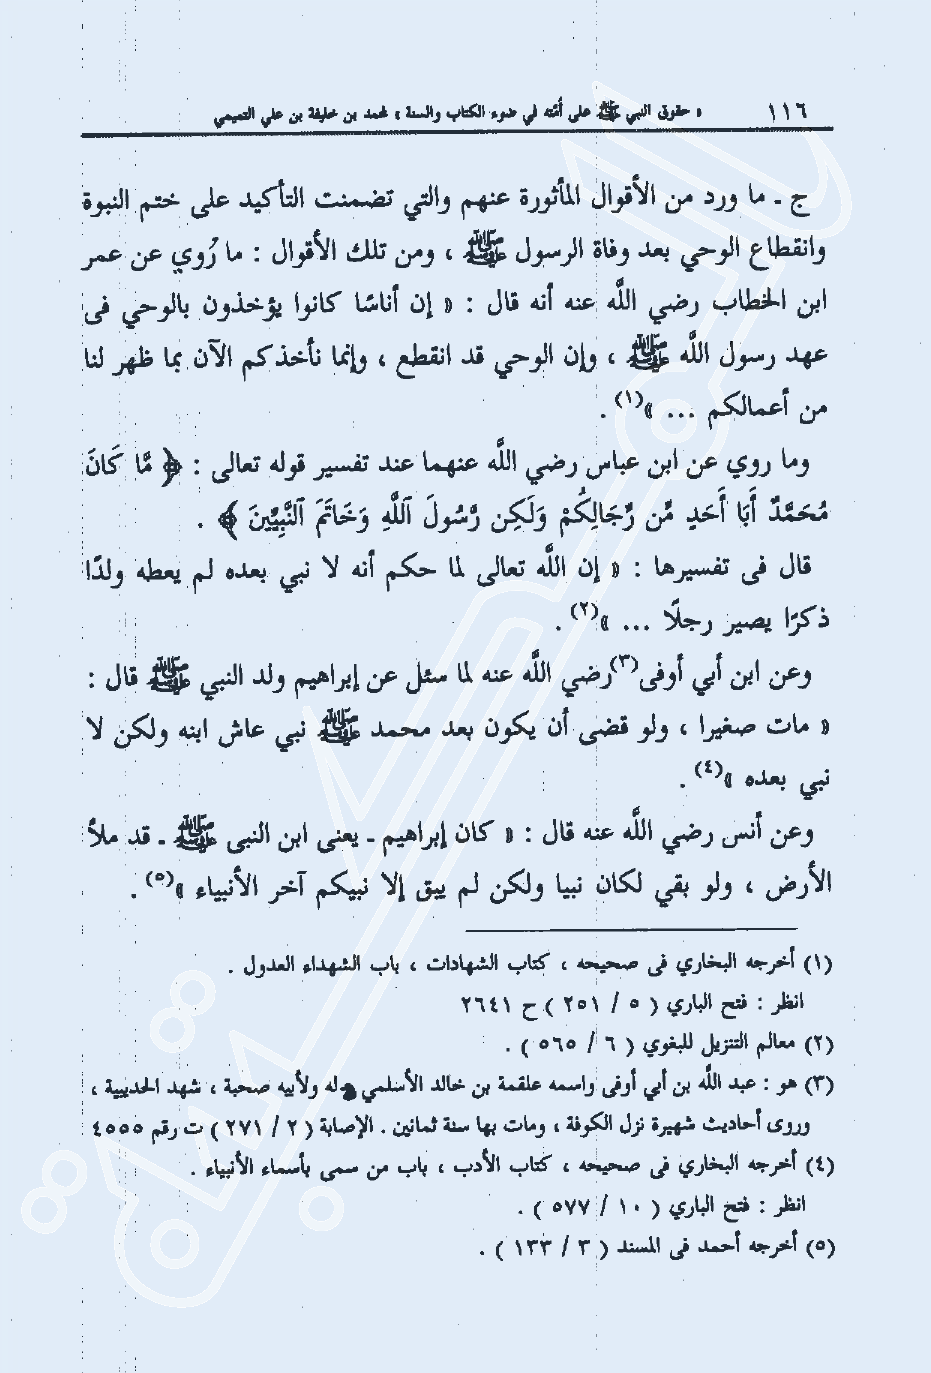 ١١٦ « حقوق النبي ﷺ على أُمته في ضوء الكتاب والسنة » محمد بن خليفة بن علي التميمي
ج ـ ما ورد من الأقوال المأثورة عنهم والتي تضمنت التأكيد على ختم النبوة
وانقطاع الوحي بعد وفاة الرسول ﷺ ، ومن تلك الأقوال : ما رُوي عن عمر
ابن الخطاب رضي اللَّه عنه أنه قال : « إن أناسًا كانوا يؤخذون بالوحي فى
عهد رسول اللَّه ﷺ ، وإن الوحي قد انقطع ، وإنما نأخذكم الآن بما ظهر لنا
من أعمالكم ... »(١) .
وما روي عن ابن عباس رضي اللَّه عنهما عند تفسير قوله تعالى : ﴿ مَّا كَانَ
مُحَمَّدٌ أَبَا أَحَدٍ مِّن رِّجَالِكُمْ وَلَكِن رَّسُولَ ٱللَّهِ وَخَاتَمَ ٱلنَّبِيِّينَ ﴾ .
قال فى تفسيرها : « إن اللَّه تعالى لما حكم أنه لا نبي بعده لم يعطه ولدًا
ذكرًا يصير رجلًا ... »(٢) .
وعن ابن أبي أوفى(٣)رضي اللَّه عنه لما سئل عن إبراهيم ولد النبي ﷺ قال :
« مات صغيرا ، ولو قضى أن يكون بعد محمد ﷺ نبي عاش ابنه ولكن لا
نبي بعده »(٤) .
وعن أنس رضي اللَّه عنه قال : « كان إبراهيم ـ يعنى ابن النبى ﷺ ـ قد ملأ
الأرض ، ولو بقي لكان نبيا ولكن لم يبق إلا نبيكم آخر الأنبياء »(٥) .
(١) أخرجه البخاري فى صحيحه ، كتاب الشهادات ، باب الشهداء العدول .
انظر : فتح الباري ( ٥ / ٢٥١ ) ح ٢٦٤١
(٢) معالم التنزيل للبغوي ( ٦ / ٥٦٥ ) .
(٣) هو : عبد اللَّه بن أبي أوفى واسمه علقمة بن خالد الأسلمي له ولأبيه صحبة ، شهد الحديبية ،
وروى أحاديث شهيرة نزل الكوفة ، ومات بها سنة ثمانين . الإصابة ( ٢ / ٢٧١ ) ت رقم ٤٥٥٥
(٤) أخرجه البخاري فى صحيحه ، كتاب الأدب ، باب من سمى بأسماء الأنبياء .
انظر : فتح الباري ( ١٠ / ٥٧٧ ) .
(٥) أخرجه أحمد فى المسند ( ٣ / ١٣٣ ) .